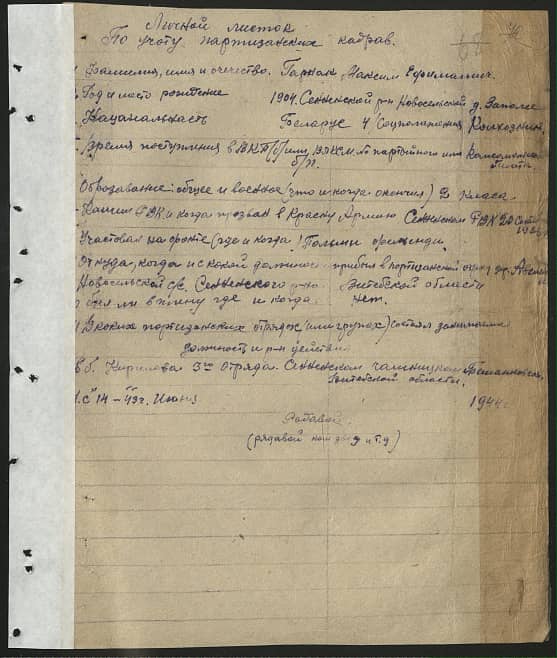 Личной листок
По учоту партизанских кадрав.
Фамилия, имя и очество. Максим Ефимавич
Год и место рождение 1904. Сенненской р-н Новосельской д. Заполе
Нацанальность Беларус 4/ Соцполажения Колхозник
время поступления в ВКП(б) или ВЛКСМ № партийного или комсомольско
б/п.
Образавание: общее и военное (что и когда окончил) 2 класа.
Каким РВК и когда прозван в Красну Армию Сенненском РВК 20
Участвовал на фронте (где и когда)
Откуда, когда и с какой должнос прибыл в партизанской отряд др.
Новосельской с/с. Сенненского р-на Витебской области
был ли в плену где и когда. нет.
В каких партизанских отрядах (или групах) состоял занимаемая
должность и р-н действи
б. Кирилова 3им Отряда. Сенненском
Витебской области.
с "14 - 43г. Июня 1944
Рядавой
(рядавой ком и т.д)